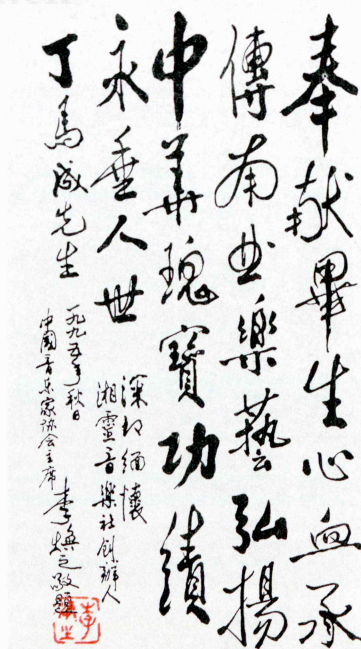 奉献畢生心血承
傳南曲樂藝弘揚
中華瑰寶功績
永垂人世
深切緬懷
湘靈音樂社創辦人
丁馬成先生
一九九五年秋日
中國音乐家协会主席
李煥之敬題
李煥之